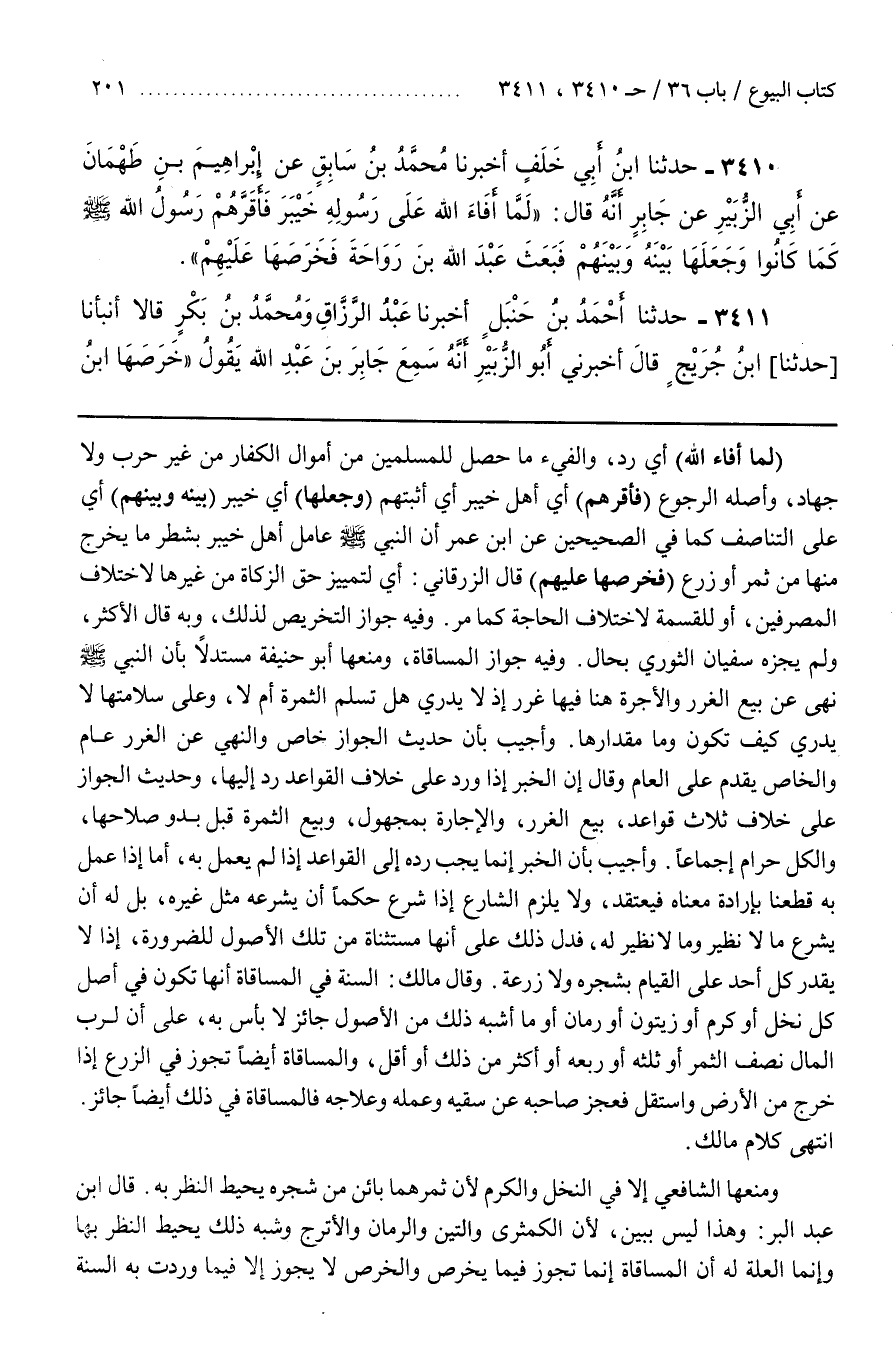 كتاب البيوع / باب ٣٦ / حـ ٣٤١٠ ، ٣٤١١ ..................................... ٢٠١
٣٤١٠ ـ حدثنا ابنُ أَبِي خَلَفٍ أخبرنا مُحمَّدُ بنُ سَابِقٍ عن إِبْراهِيمَ بـنِ طَهْمَانَ
عن أَبِي الزُّبَيْرِ عن جَابِرٍ أَنَّهُ قال: «لَمَّا أَفَاءَ الله عَلَى رَسُولِهِ خَيْبَرَ فَأَقَرَّهُمْ رَسُولُ الله ﷺ
كَمَا كَانُوا وَجَعَلَهَا بَيْنَهُ وَبَيْنَهُمْ فَبَعَثَ عَبْدَ الله بنَ رَوَاحَةَ فَخَرَصَهَا عَلَيْهِمْ».
٣٤١١ ـ حدثنا أَحْمَدُ بنُ حَنْبَلٍ أخبرنا عَبْدُ الرَّزَّاقِ وَمُحمَّدُ بنُ بَكْرٍ قالا أنبأنا
[حدثنا] ابنُ جُرَيْجٍ قالَ أخبرني أَبُو الزُّبَيْرِ أَنَّهُ سَمِعَ جَابِرَ بنَ عَبْدِ الله يَقُولُ «خَرَصَهَا ابنُ
(لما أفاء الله) أي رد، والفيء ما حصل للمسلمين من أموال الكفار من غير حرب ولا
جهاد، وأصله الرجوع (فأقرهم) أي أهل خيبر أي أثبتهم (وجعلها) أي خيبر (بينه وبينهم) أي
على التناصف كما في الصحيحين عن ابن عمر أن النبي ﷺ عامل أهل خيبر بشطر ما يخرج
منها من ثمر أو زرع (فخرصها عليهم) قال الزرقاني: أي لتمييز حق الزكاة من غيرها لاختلاف
المصرفين، أو للقسمة لاختلاف الحاجة كما مر. وفيه جواز التخريص لذلك، وبه قال الأكثر،
ولم يجزه سفيان الثوري بحال. وفيه جواز المساقاة، ومنعها أبو حنيفة مستدلاً بأن النبي ﷺ
نهى عن بيع الغرر والأجرة هنا فيها غرر إذ لا يدري هل تسلم الثمرة أم لا، وعلى سلامتها لا
يدري كيف تكون وما مقدارها. وأجيب بأن حديث الجواز خاص والنهي عن الغرر عـام
والخاص يقدم على العام وقال إن الخبر إذا ورد على خلاف القواعد رد إليها، وحديث الجواز
على خلاف ثلاث قواعد، بيع الغرر، والإجارة بمجهول، وبيع الثمرة قبل بـدو صلاحها،
والكل حرام إجماعاً. وأجيب بأن الخبر إنما يجب رده إلى القواعد إذا لم يعمل به، أما إذا عمل
به قطعنا بإرادة معناه فيعتقد، ولا يلزم الشارع إذا شرع حكماً أن يشرعه مثل غيره، بل له أن
يشرع ما لا نظير وما لا نظير له، فدل ذلك على أنها مستثناة من تلك الأصول للضرورة، إذا لا
يقدر كل أحد على القيام بشجره ولا زرعة. وقال مالك: السنة في المساقاة أنها تكون في أصل
كل نخل أو كرم أو زيتون أو رمان أو ما أشبه ذلك من الأصول جائز لا بأس به، على أن لـرب
المال نصف الثمر أو ثلثه أو ربعه أو أكثر من ذلك أو أقل، والمساقاة أيضاً تجوز في الزرع إذا
خرج من الأرض واستقل فعجز صاحبه عن سقيه وعمله وعلاجه فالمساقاة في ذلك أيضاً جائز.
انتهى كلام مالك.
ومنعها الشافعي إلا في النخل والكرم لأن ثمرهما بائن من شجره يحيط النظر به. قال ابن
عبد البر: وهذا ليس ببين، لأن الكمثرى والتين والرمان والأترج وشبه ذلك يحيط النظر بها
وإنما العلة له أن المساقاة إنما تجوز فيما يخرص والخرص لا يجوز إلا فيما وردت به السنة